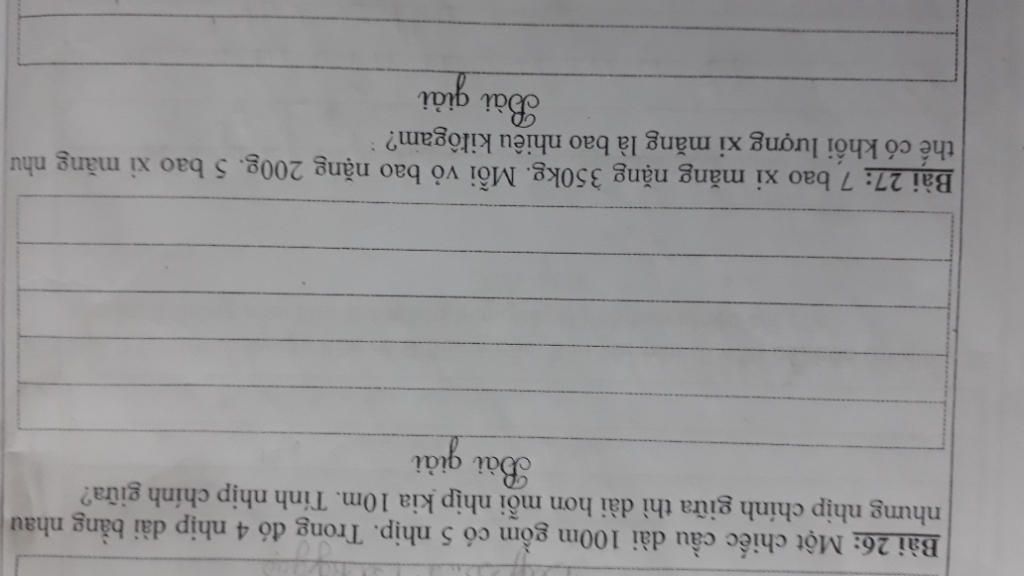 Bài 26: Một chiếc cầu dài 100m gồm có 5 nhịp. Trong đó 4 nhịp dài bằng nhau
nhưng nhịp chính giữa thì dài hơn mỗi nhịp kia 10m. Tính nhịp chính giữa?
Bài giải
Bài 27: 7 bao xi măng nặng 350kg. Mỗi vỏ bao nặng 200g. 5 bao xi măng như
thế có khối lượng xi măng là bao nhiêu kilôgam?
Bài giải